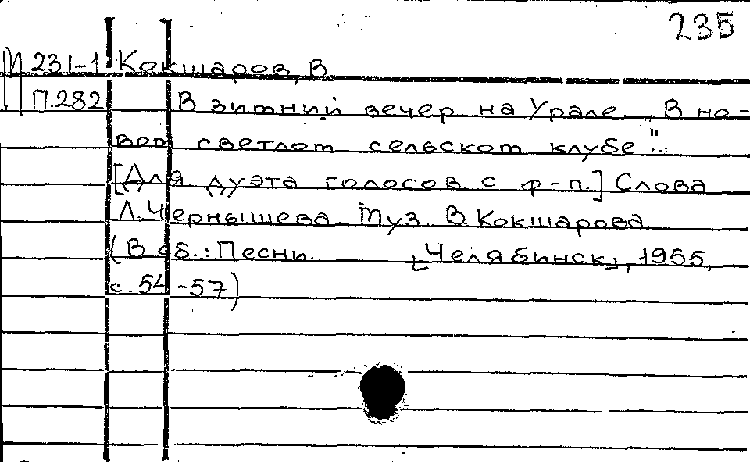 235
М 231-1 Кокшаров, В.
П.282 В зимний вечер на Урале „В но-
вом светлом сельском клубе".
[Для дуэта голосов с ф-п.] Слова
Л. Чернышева Муз. В. Кокшарова
(В сб.: Песни. [Челябинск], 1955,
с. 54-57)